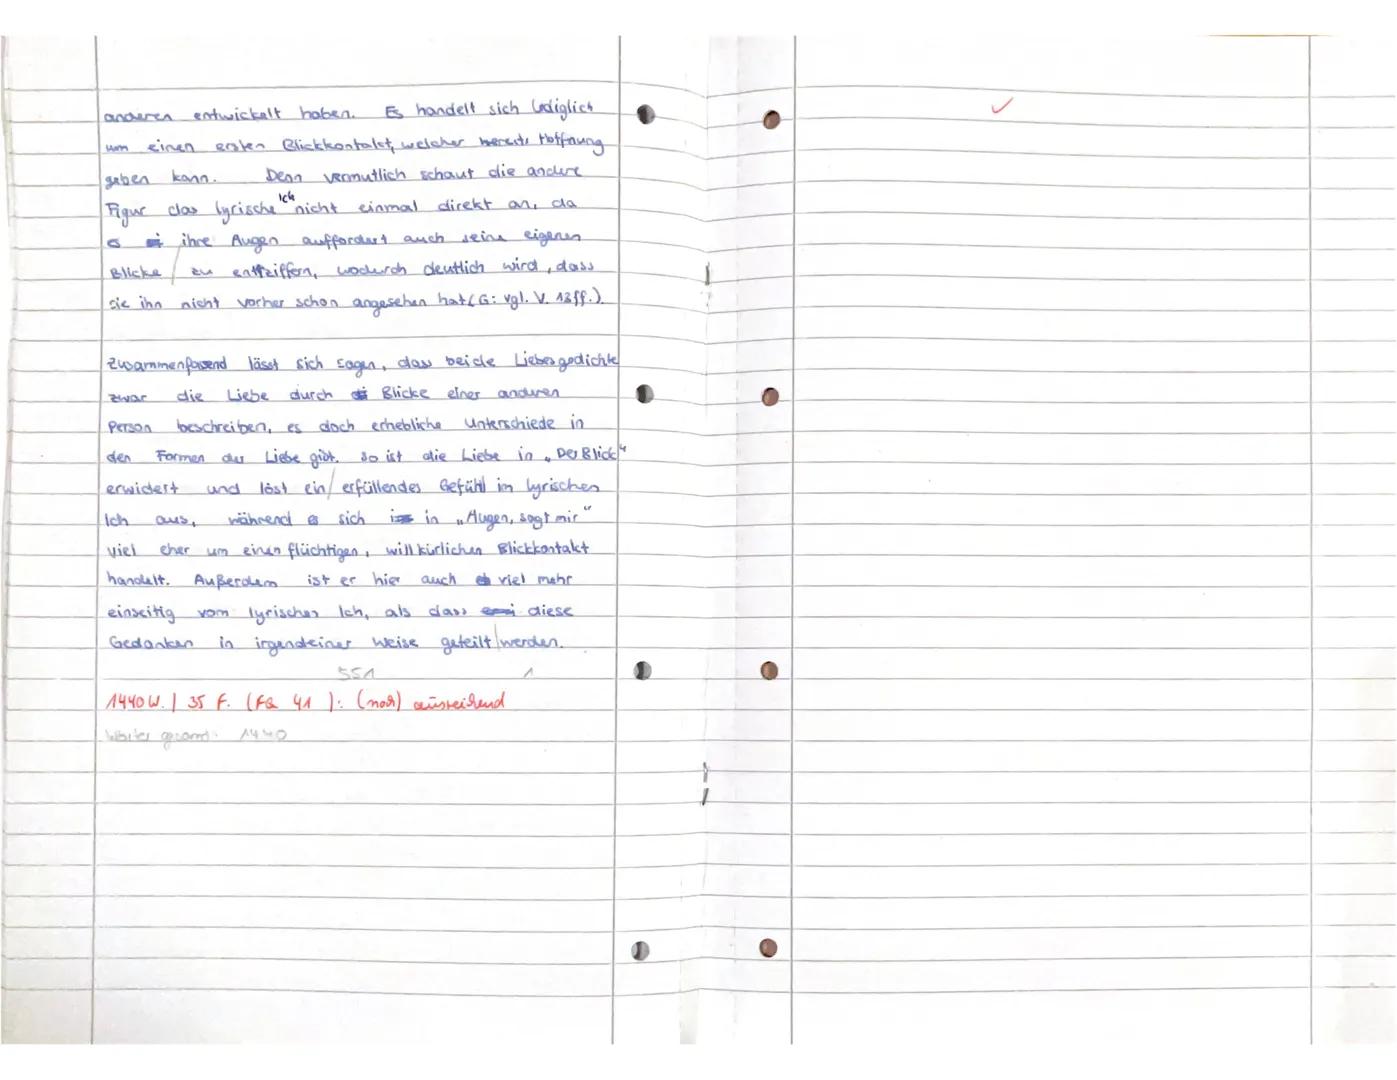 anderen entwickelt haben. Es handelt sich lediglich
um einen ersten Blickkontakt, welcher bereits Hoffnung
geben kann. Denn vermutlich schaut die andere
Figur das lyrische Ich nicht einmal direkt an, da
es ihre Augen auffordert auch seine eigenen
Blicke zu entziffern, wodurch deutlich wird, dass
sie ihn nicht vorher schon angesehen hat (G: vgl. V. 13ff.).
Zusammenfassend lässt sich sagen, dass beide Liebesgedichte
zwar die Liebe durch Blicke einer anderen
Person beschreiben, es doch erhebliche Unterschiede in
den Formen der Liebe gibt. So ist die Liebe in „Der Blick“
erwidert und löst ein erfüllendes Gefühl im lyrischen
Ich aus, während es sich in „Augen, sagt mir“
viel eher um einen flüchtigen, willkürlichen Blickkontakt
handelt. Außerdem ist er hier auch viel mehr
einseitig vom lyrischen Ich, als dass diese
Gedanken in irgendeiner Weise geteilt werden.
551 1
1440 W. / 35 F. (FQ 41): (noch) ausreichend
Wörter gesamt: 1440